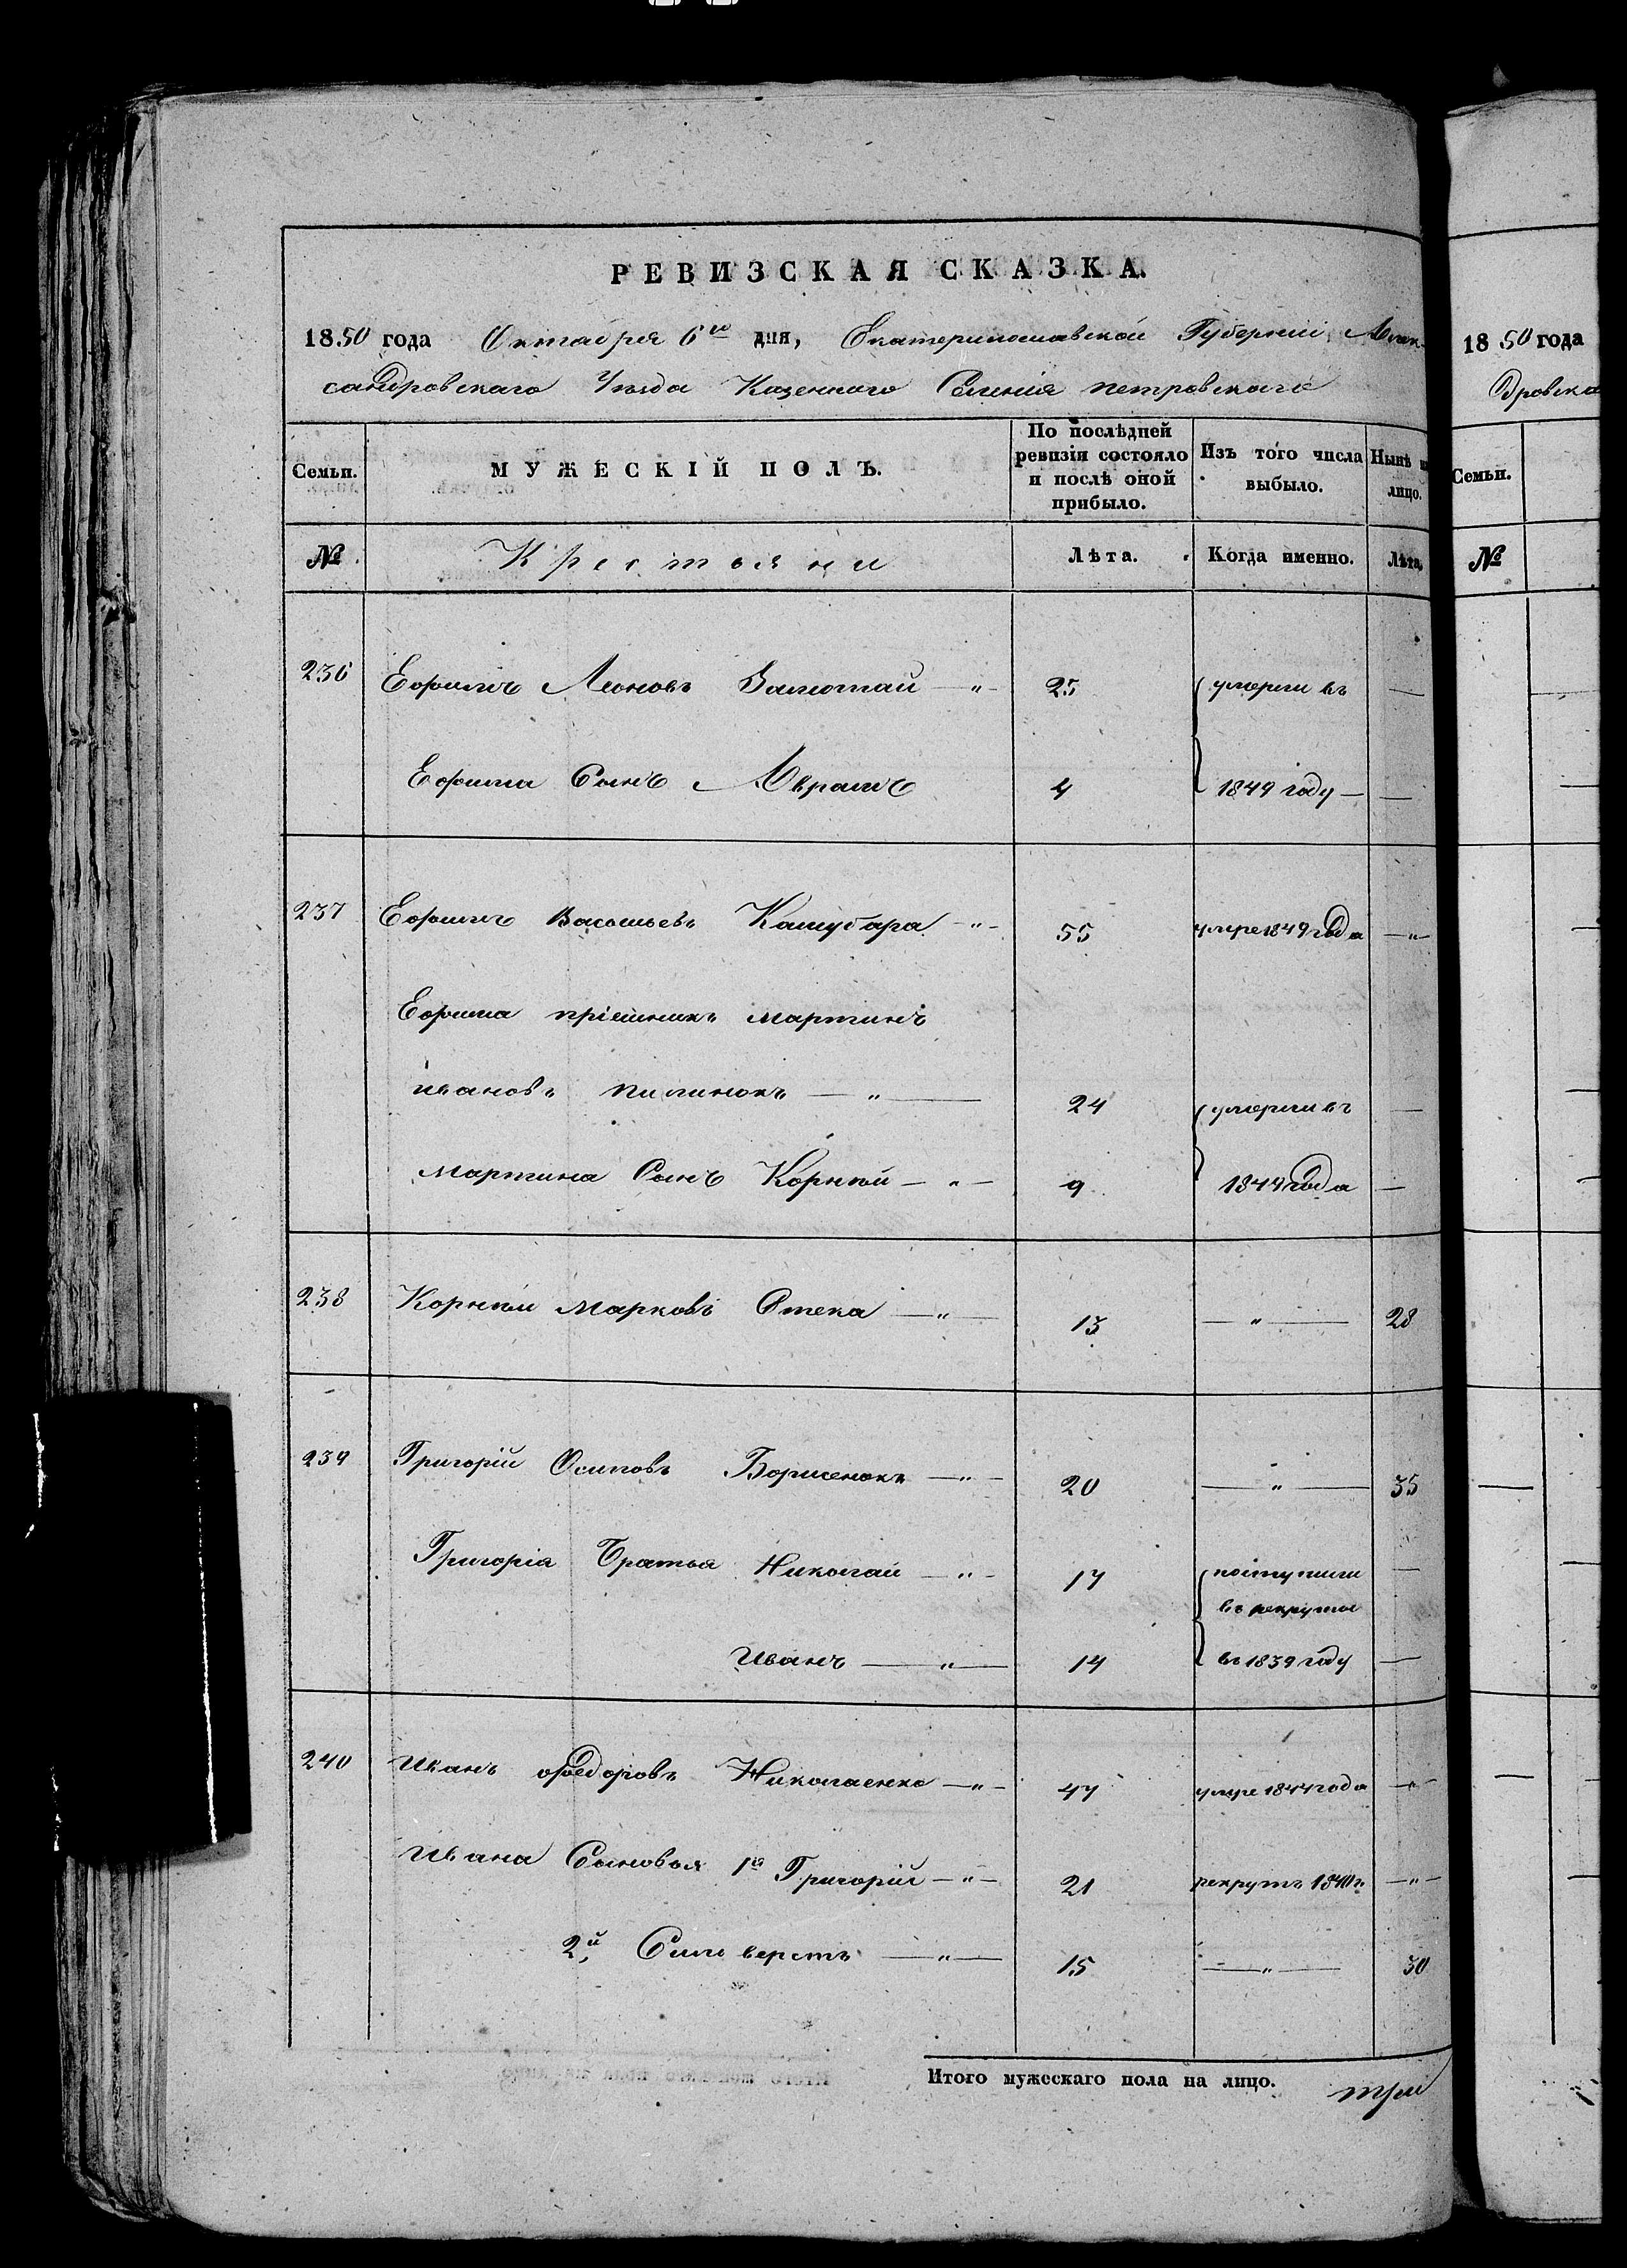 РЕВИЗСКАЯ СКАЗКА.
1850 года Октабря 6го дня, Екатеринославской Губерніи Алек-
сандровскаго Уезда Казеннаго Селенія петровскаго
Семьи.
МУЖЕСКІЙ ПОЛЪ.
По послѣдней ревизіи состояло и послѣ оной прибыло.
Изъ того числа выбыло.
Нынѣ на лицо.
№
Крестьяни
Лѣта.
Когда именно.
Лѣта.
236 Ефимъ Леоновъ — " — 25 умерли въ —
Ефима Сынъ Аврамъ 4 1849 году — —
237 Ефимъ Васильевъ Кашубара — " — 55 умре 1849 года — " —
Ефима пріемникъ Мартинъ
Ивановъ Пилипокъ — " — 24 умерли въ —
Мартина Сынъ Корнѣй — " — 9 1849 года —
238 Корнѣй Марковъ Стека — " — 13 — " — 28
239 Григорій Осиповъ Борисенокъ — " — 20 — " — 35
Григорія Братья Николай — " — 17 поступили —
въ рекруты
Иванъ — " — 14 въ 1839 году —
240 Иванъ Федоровъ Николаенко — " — 47 умре 1844 года — " —
Ивана Сыновья 1й Григорій — " — 21 рекрутъ 1840 г. — " —
2й, Сильверстъ — " — 15 — " — 30
Итого мужескаго пола на лицо. три
1850 года
дровска
Семьи.
№